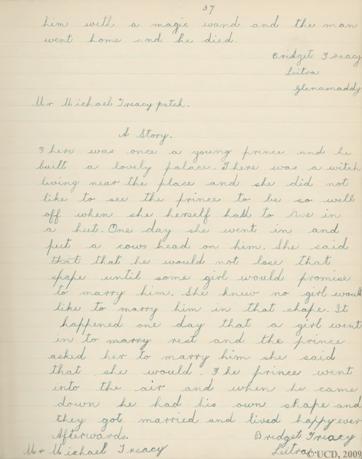 37
him with a magic wand and the man
went home and he died.
Bridget Treacy
Leitra
Glenamaddy
Mr Michael Treacy
A Story.
There was once a young prince and he
built a lovely palace. There was a witch
living near the place and she did not
like to see the prince to be so well
off when she herself had to live in
a hut. One day she went in and
put a cows head on him. She said
that that he would not lose that
shape until some girl would promise
to marry him. She knew no girl would
like to marry him in that shape. It
happened one day that a girl went
in to rest and the prince
asked her to marry him she said
that she would. The prince went
into the air and when he came
down he had his own shape and
they got married and lived happy ever
Afterwards.
Bridget Treacy
Mr Michael Treacy
Leitra
© UCD, 2009